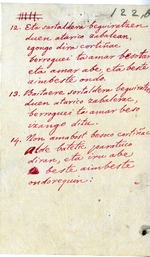 122
12. Eta sartaldera beguiratzen
duen atarico zabalean,
egongo dira cortiñac
berroguei ta amar besotan
eta amar abe, eta beste
aimbeste onda.
13. Bustiera sortaldera beguiratzen
duen atarico zabalera,
berroguei ta amar beso
izango ditu.
14. Non amabost besoco cortiñac
alde batetic paratuco
diran, eta iru abe
beste aimbeste
ondorequin: